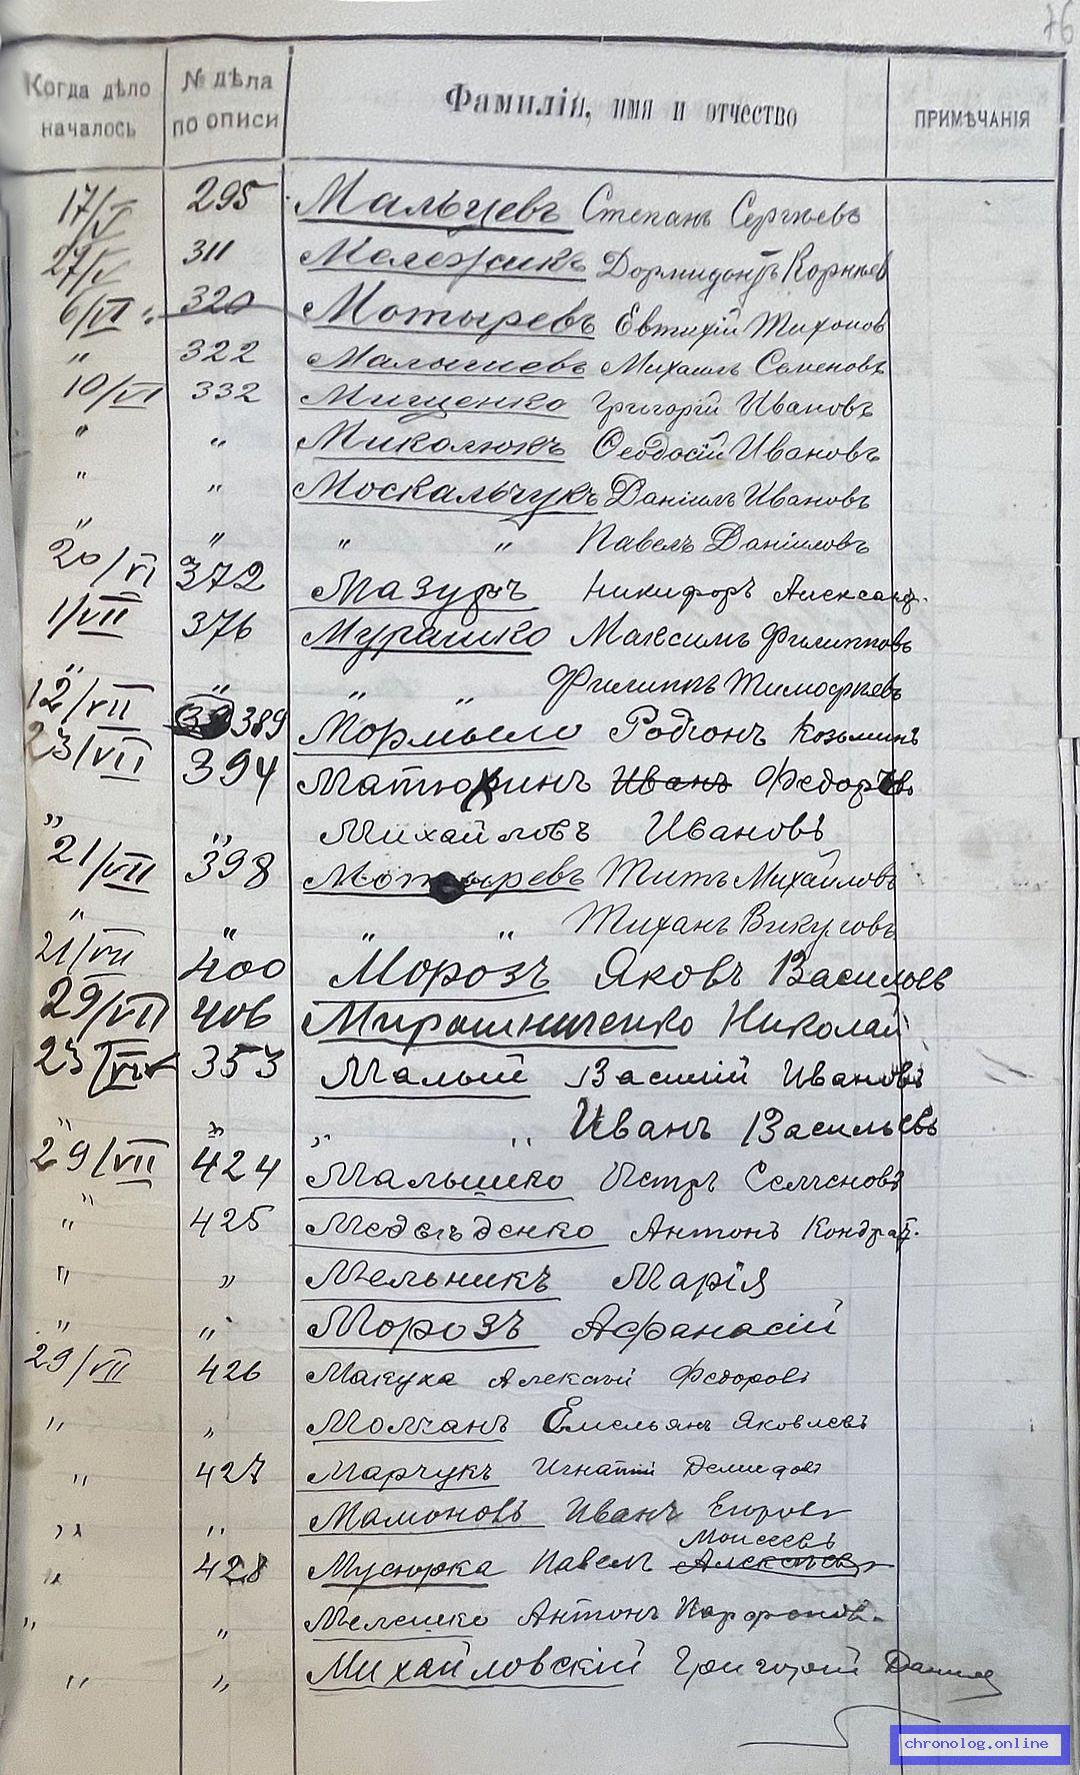 76
Когда дѣло началось
№ дѣла по описи
Фамиліи, имя и отчество
ПРИМѢЧАНІЯ
17/V 295 Мальцевъ Степанъ Сергѣевъ
27/V 311 Мележикъ Дормидонтъ Корнѣев
6/VI 320 Мотыревъ Евтихій Тихонов
" 322 Малышевъ Михаилъ Семеновъ
10/VI 332 Мищенко Григорій Ивановъ
" " Миколюкъ Ѳеодосій Ивановъ
" " Москальчукъ Даніилъ Ивановъ
" " " " Павелъ Даніиловъ
20/VI 372 Мазуръ Никифоръ Александ.
1/VII 376 Мурашко Максимъ Филипповъ
" " " " Филиппъ Тимофѣевъ
12/VII 389 Мормыло Родіонъ Козьминъ
23/VII 394 Матюхинъ Иванъ Федоровъ
" " Михайловъ Ивановъ
21/VII 398 Мотыревъ Титъ Михайловъ
" " " " Тиханъ Викуловъ
21/VII 400 Морозъ Яковъ Васильев
29/VII 406 Мирошниченко Николай
23/VII 353 Малый Василій Ивановъ
" " " " Иванъ Васильевъ
29/VII 424 Малышко Петръ Семеновъ
" 425 Медвѣденко Антонъ Кондрат.
" " Мельникъ Марія
" " Морозъ Афанасій
29/VII 426 Макуха Алексѣй Федоровъ
" " Молчанъ Емельянъ Яковлевъ
" 427 Марчукъ Игнатій Демидовъ
" " Мамоновъ Иванъ Егоровъ
Моисеевъ
" 428 Мусюрка Павелъ Алексѣевъ
" " Мелешко Антонъ Парфенов.
" " Михайловскій Григорій Данил
chronolog.online